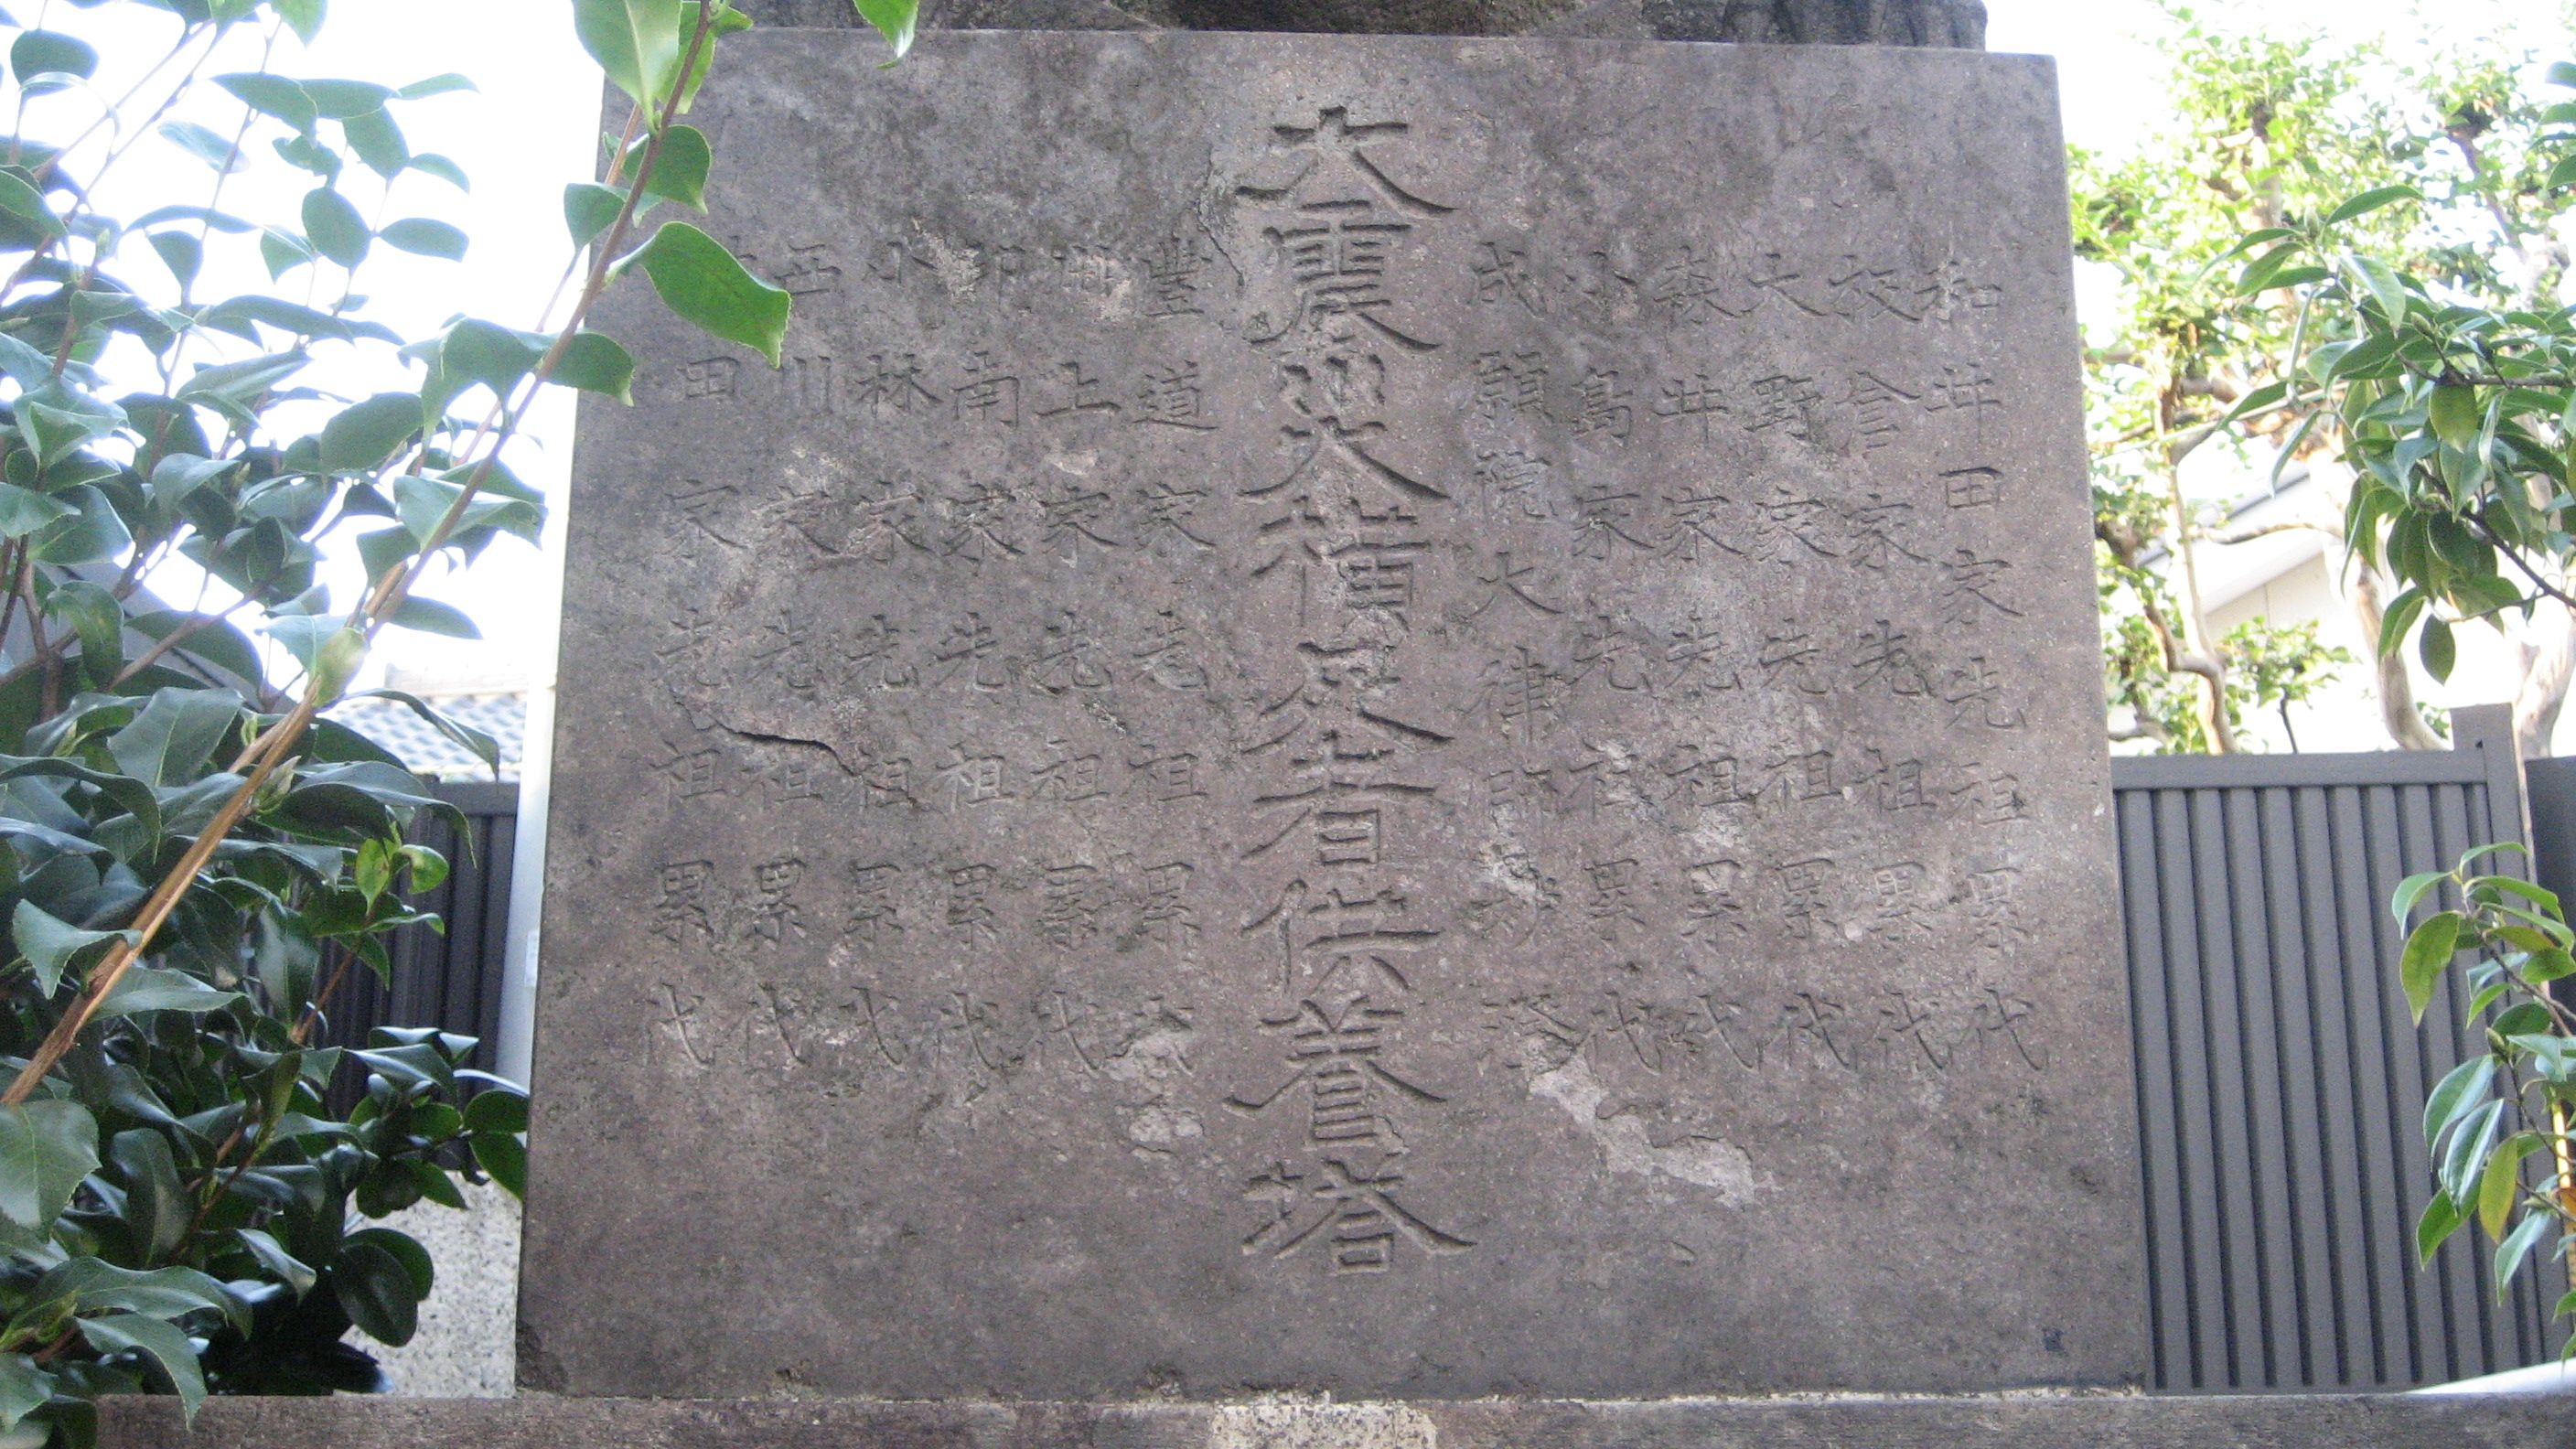 和井田家先祖累代
家先祖累代
大野家先祖累代
森井家先祖累代
小島家先祖累代
成願院大律師
大震災横死者供養塔
豐道家先祖累代
上家先祖累代
印南家先祖累代
小林家先祖累代
西川家先祖累代
田家先祖累代